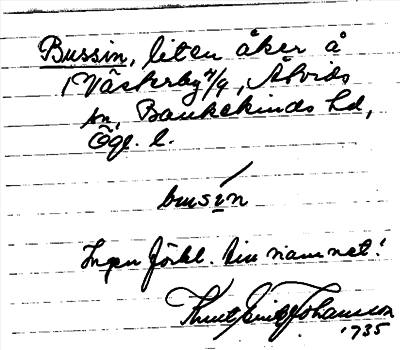 Bussin, liten åker å
Västerby n/g, Åtvids
sn, Bankekinds hd,
Ögl. l.
busin
Ingen förkl. till namnet!
Knut Emil Johansson
1735